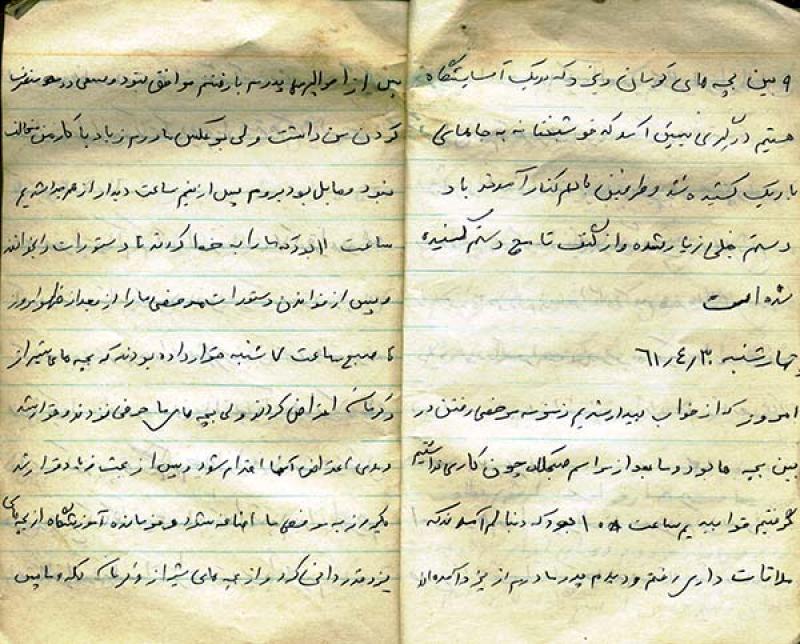 و بین بچه های کرمان و یزد که در یک آسایشگاه
هستیم درگیری پیش آمد که خوشبختانه به جاهای
باریک کشیده نشد و طرفین با هم کنار آمدند باد
دستم خیلی زیاد شده و از کتف تا مچ دستم کشیده
شده است
چهارشنبه ۶۱٫۴٫۳۰
امروز که از خواب بیدار شدیم زمزمه مرخصی رفتن در
بین بچه ها بود و ما بعد از مراسم صبحگاه چون کاری نداشتیم
گرفتیم خوابیدیم ساعت ۱۰ بود که دنبالم آمدند که
ملاقات داری رفتم و دیدم پدر و مادرم از یزد آمده اند
پس از احوالپرسی پدرم با رفتنم موافق نبود و سعی در منصرف
کردن من داشت ولی بر عکس مادرم زیاد با کار من مخالف
نبود و مایل بود بروم پس از نیم ساعت دیدار از هم جدا شدیم
ساعت ۱۱ بود که ما را به خط کردند تا دستورات را بخوانند
و پس از خواندن دستورات مرخصی ما را از بعد از ظهر امروز
تا صبح ساعت ۷ شنبه قرار داده بودند که بچه های شیراز
و کرمان اعتراض کردند ولی بچه های ما حرفی نزدند و قرار شد
روی اعتراض آنها اقدام شود و پس از بحث زیاد قرار شد
یکروز به مرخصی ما اضافه شود و فرمانده آموزشگاه از بچه های
یزد قدردانی کرد و از بچه های شیراز و کرمان گله و ما پس